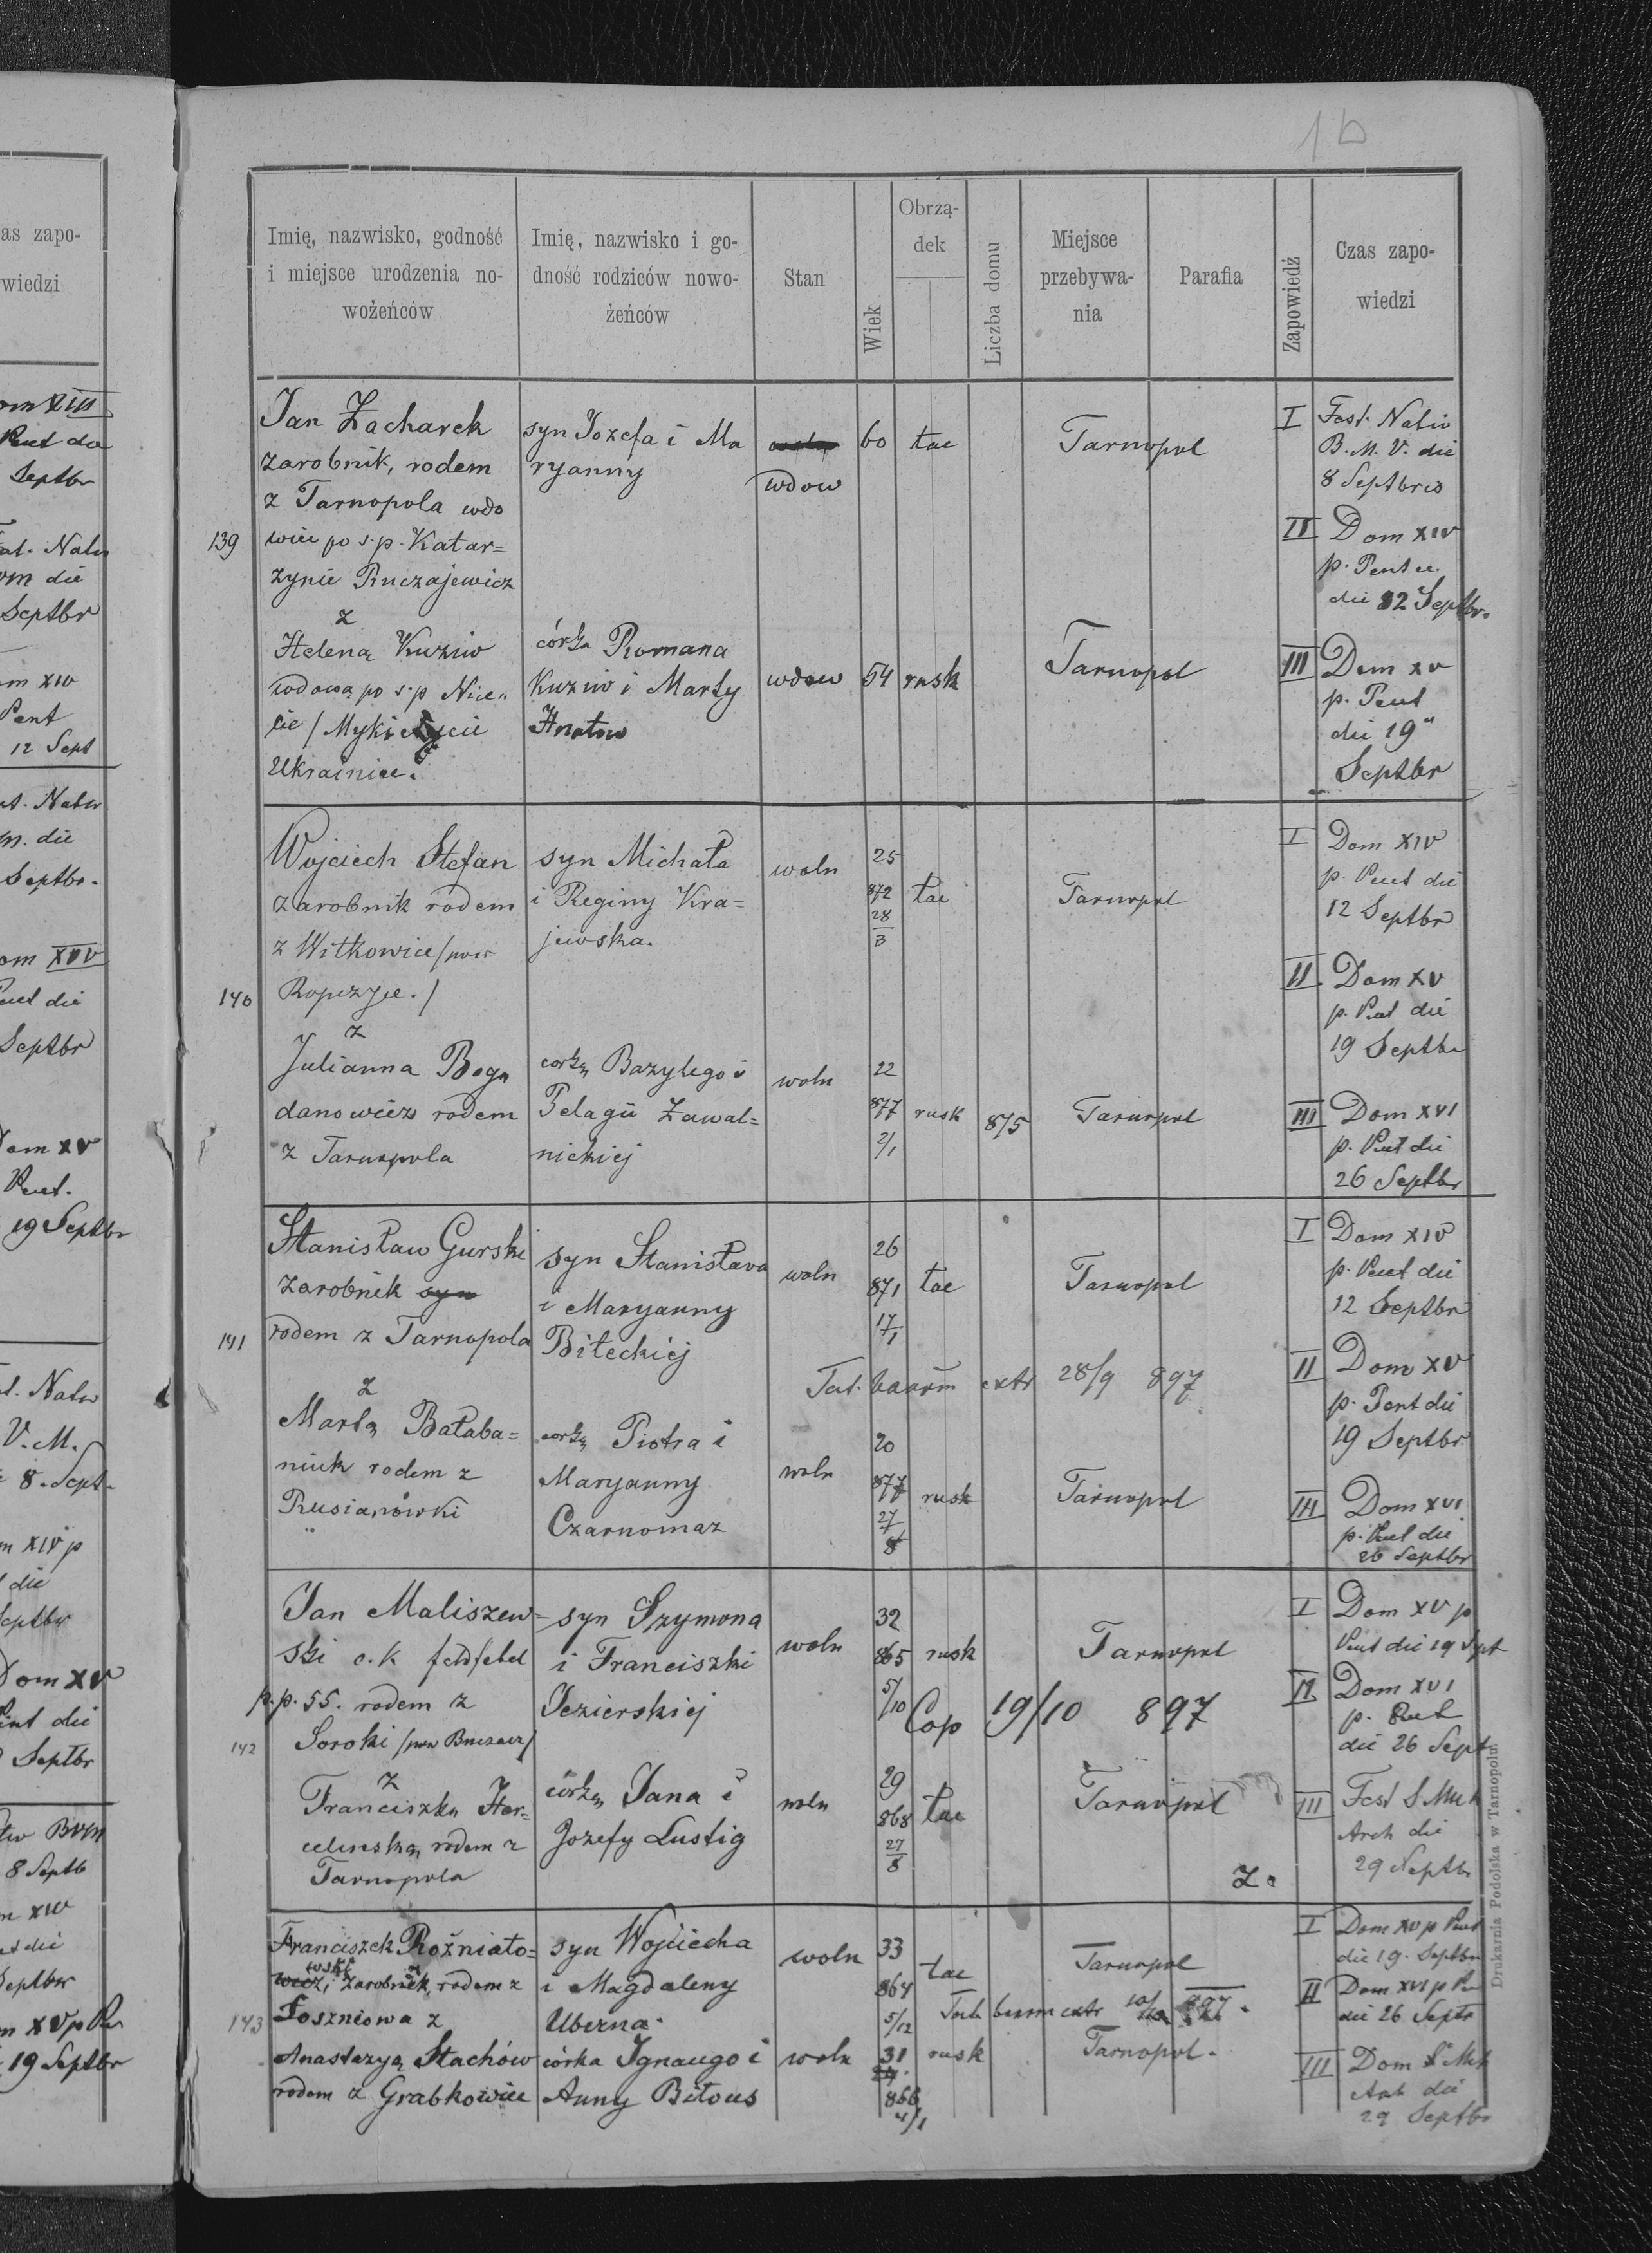 1b
Imię, nazwisko, godność
i miejsce urodzenia no-
wożeńców
Imię, nazwisko i go-
dność rodziców nowo-
żeńców
Stan
Wiek
Obrzą-
dek
Liczba domu
Miejsce
przebywa-
nia
Parafia
Zapowiedź
Czas zapo-
wiedzi
139
Jan Zacharek
zarobnik, rodem
z Tarnopola wdo
wiec po s.p. Katar=
zynie Ruczajewicz
z
syn Jozefa i Ma
ryanny
wdow
60
łac
Tarnopol
I
Fest. Nativ
B. M. V. die
8 Septbris
II
Dom XIV
p. Pent
die 12 Septbr.
Heleną Kuzriw
wdową po s.p Nice
Ukrainiec.
córka Romana
Kuzriw i Marty
Hnatow
wdow
54
rusk
Tarnopol
III
Dom XV
p. Pent
die 19
Septbr
140
Wojciech Stefan
zarobnik rodem
z Witkowice /pow
Ropczyce./
z
syn Michała
i Reginy Kra=
jewska.
woln
25
872
28
3
łac
Tarnopol
I
Dom XIV
p. Pent die
12 Septbr
II
Dom XV
p. Pent die
19 Septbr
Julianna Bog
danowicz rodem
z Tarnopola
corką Bazylego i
Pelagii Zawal=
nickiej
woln
22
877
2/1
rusk
875
Tarnopol
III
Dom XVI
p. Pent die
26 Septbr
141
Stanisław Gurski
zarobnik syn
rodem z Tarnopola
z
syn Stanisława
i Maryanny
Biłeckiej
woln
26
871
17/1
łac
Tarnopol
I
Dom XIV
p. Pent die
12 Septbr
II
Dom XV
p. Pent die
19 Septbr
extr 28/9 897
Martą Bałaba=
niuk rodem z
Rusianówki
corką Piotra i
Maryanny
Czarnomaz
woln
20
877
27
8
rusk
Tarnopol
III
Dom XVI
p. Pent die
26 Septbr
142
Jan Maliszew=
ski c. k feldfebel
p.p. 55. rodem z
Soroki /pow Buczacz/
z
syn Szymona
i Franciszki
Jezierskiej
woln
32
865
5/10
rusk
Tarnopol
Cop 19/10 897
I
Dom XV p
Pent die 19 Sept
II
Dom XVI
p. Pent
die 26 Sept
Franciszką Hor=
rodem z
Tarnopola
córką Jana i
Jozefy Lustig
woln
29
868
27
8
łac
Tarnopol
Z.
III
Fest S Mich
Arch die
29 Septbr
143
Franciszek Rożniato=
wski
zarobnik, rodem z
Foszniowa z
syn Wojciecha
i Magdaleny
Uberna
woln
33
864
5/12
łac
Tarnopol
I
Dom XV p Pent
die 19. Septbr
II
Dom XVI p Pe
die 26 Septr
Anastazyą Stachów
rodem z Grabkowice
córka Ignacego i
Anny Biłous
woln
31
866
4/1
rusk
Tarnopol.
III
Dom S Mich
Arch die
29 Septbr
Drukarnia Podolska w Tarnopolu